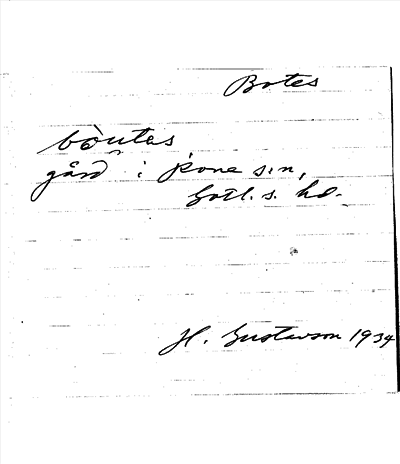 Botes
bòutas
gård i Rone s:n,
Gotl. s. hd.
H. Gustavson 1934